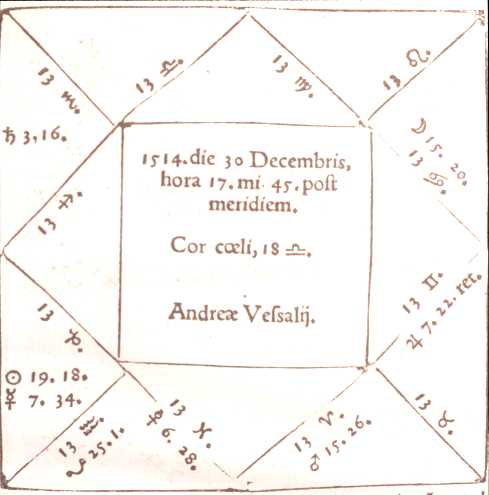 13 ♏.
♄ 3, 16.
13 ♎.
13 ♍.
13 ♌.
☽ 15. 20.
13 ♋.
13 ♐.
1514. die 30 Decembris,
hora 17. mi. 45. poſt
meridiem.
Cor cœli, 18 ♎.
Andreæ Veſſalij.
13 ♊.
♃ 7. 22. ret.
13 ♑.
☉ 19. 18.
☿ 7. 34.
13 ♒.
25. 1.
13 ♓.
♀ 6. 28.
13 ♈.
♂ 15. 26.
13 ♉.